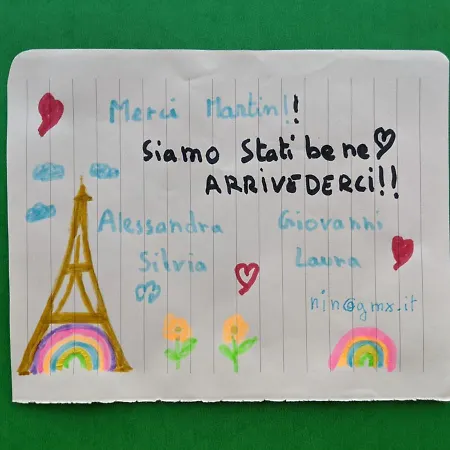 Merci Martin!!
Siamo Stati bene
ARRIVEDERCI!!
Alessandra Giovanni
Silvia Laura
nin@gmx.it